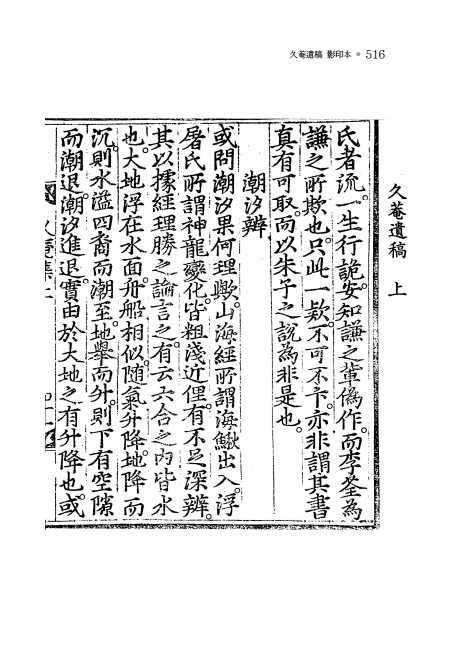 久菴遺稿 影印本 ● 516
久菴遺稿 上
氏者流。一生行詭。安知謙之輩僞作。而李荃爲
謙之所欺也。只此一款。不可不卞。亦非謂其書
眞有可取。而以朱子之說爲非是也。
潮汐辨
或問潮汐果何理歟。山海經所謂海鰍出入。浮
屠氏所謂神龍變化。皆粗淺近俚。有不足深辨。
其以據經理勝之論言之。有云六合之內皆水
也。大地浮在水面。舟船相似。隨氣升降。地降而
沉。則水溢四裔而潮至。地擧而升。則下有空隙
而潮退。潮汐進退。實由於大地之有升降也。或